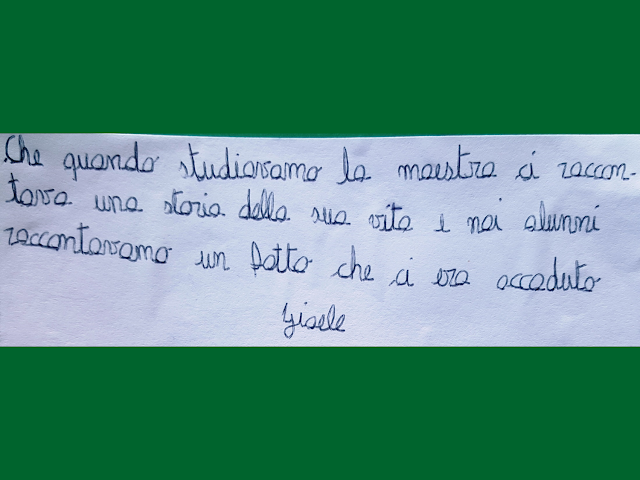 Che quando studiavamo la maestra ci raccon-
tava una storia della sua vita e noi alunni
raccontavamo un fatto che ci era accaduto
Gisele